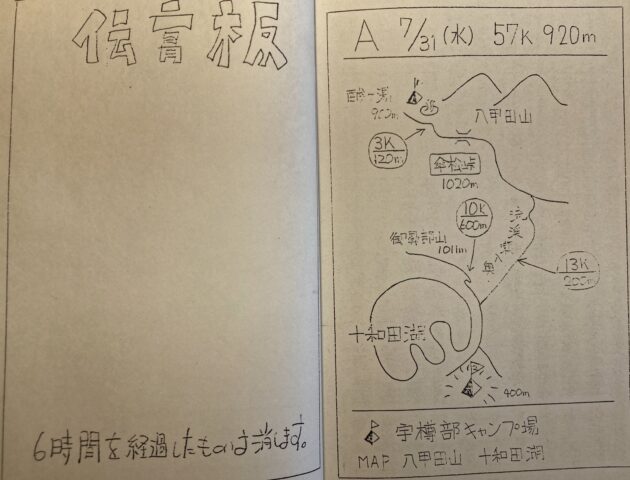 伝言板
6時間を経過したものは消します。
A 7/31(水) 57K 920m
八甲田山
酸ヶ湯
3K
120m
傘松峠
1020m
10K
600m
御鼻部山
1011m
奥入瀬渓流
13K
200m
十和田湖
400m
宇樽部キャンプ場
MAP 八甲田山 十和田湖